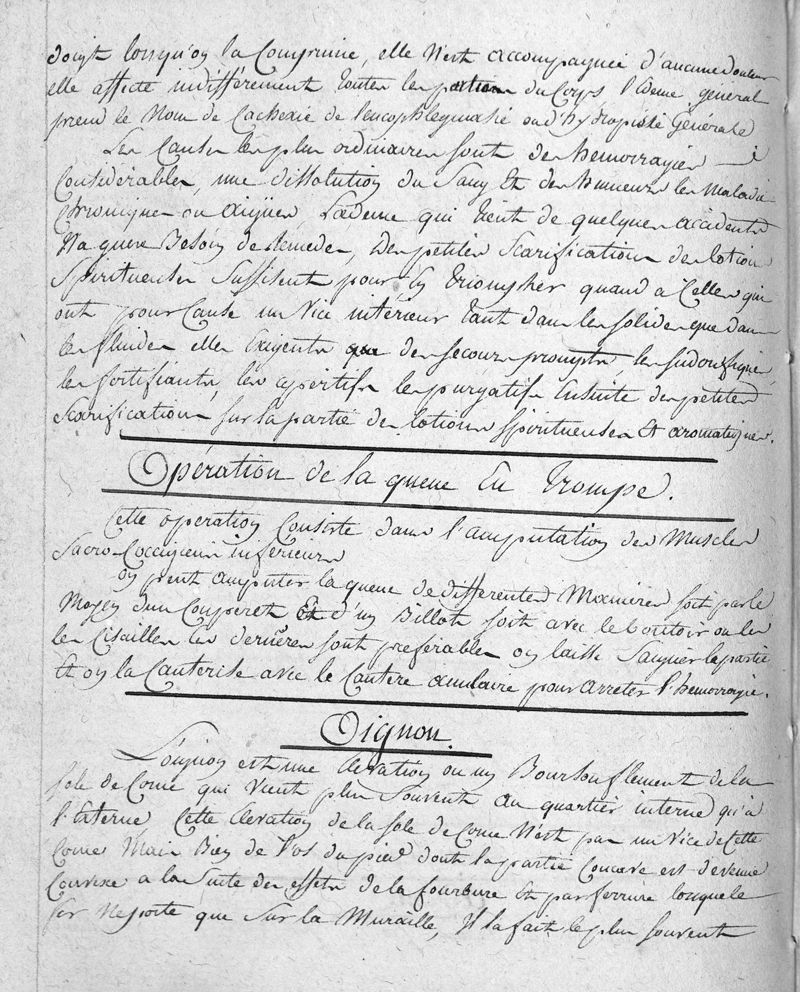 doigt lorsqu'on la Comprime, elle n'est accompagnée d'aucune douleur
elle affecte indifféremment toutes les parties du Corps l'œdeme général
prend le Nom de Cachexie de leucophlegmatie ou d'hydropisie Générale
Les Causes les plus ordinaires sont des hemorragies
Considérables, une dissolution du Sang Et des humeurs les maladies
Chroniques ou Aigües, L'œdeme qui vient de quelques accidents
N'a guere Besoin de remedes, Des petites Scarifications des lotions
Spiritueuses Suffisent pour en triompher quand a Celles qui
ont pour Cause un Vice intérieur tant dans les solides que dans
les fluides elles Exigents des secours prompts, les sudorifiques,
les fortifiants, les apéritifs les purgatifs Ensuite des petites
Scarifications sur la partie des lotions Spiritueuses Et aromatiques.
Opération de la queue En Trompe.
Cette operation Consiste dans l'amputation des Muscles
Sacro-Coccigiens inférieurs
on peut amputer la queue de differentes Manieres soit par le
Moyen d'un Couperet Et d'un Billot soit avec le boutoir ou les
les Cisailles ces dernères sont preférables on laisse Saigner la partie
Et on la Cauterise avec le Cautere annulaire pour arreter l'hemorragie.
Oignon.
L'oignon est une Elevation ou un Boursouflement de la
sole de Corne qui vient plus souvent au quartier interne qu'a
l'Externe Cette Elevation de la sole de Corne N'est pas un Vice de Cette
Corne Mais Bien de l'os du pied dont la partie Concave est devenue
Convexe a la Suite des effets de la fourbure Et par ferrure lorsque le
fer Ne porte que Sur la Muraille, Il la fait le plus souvent